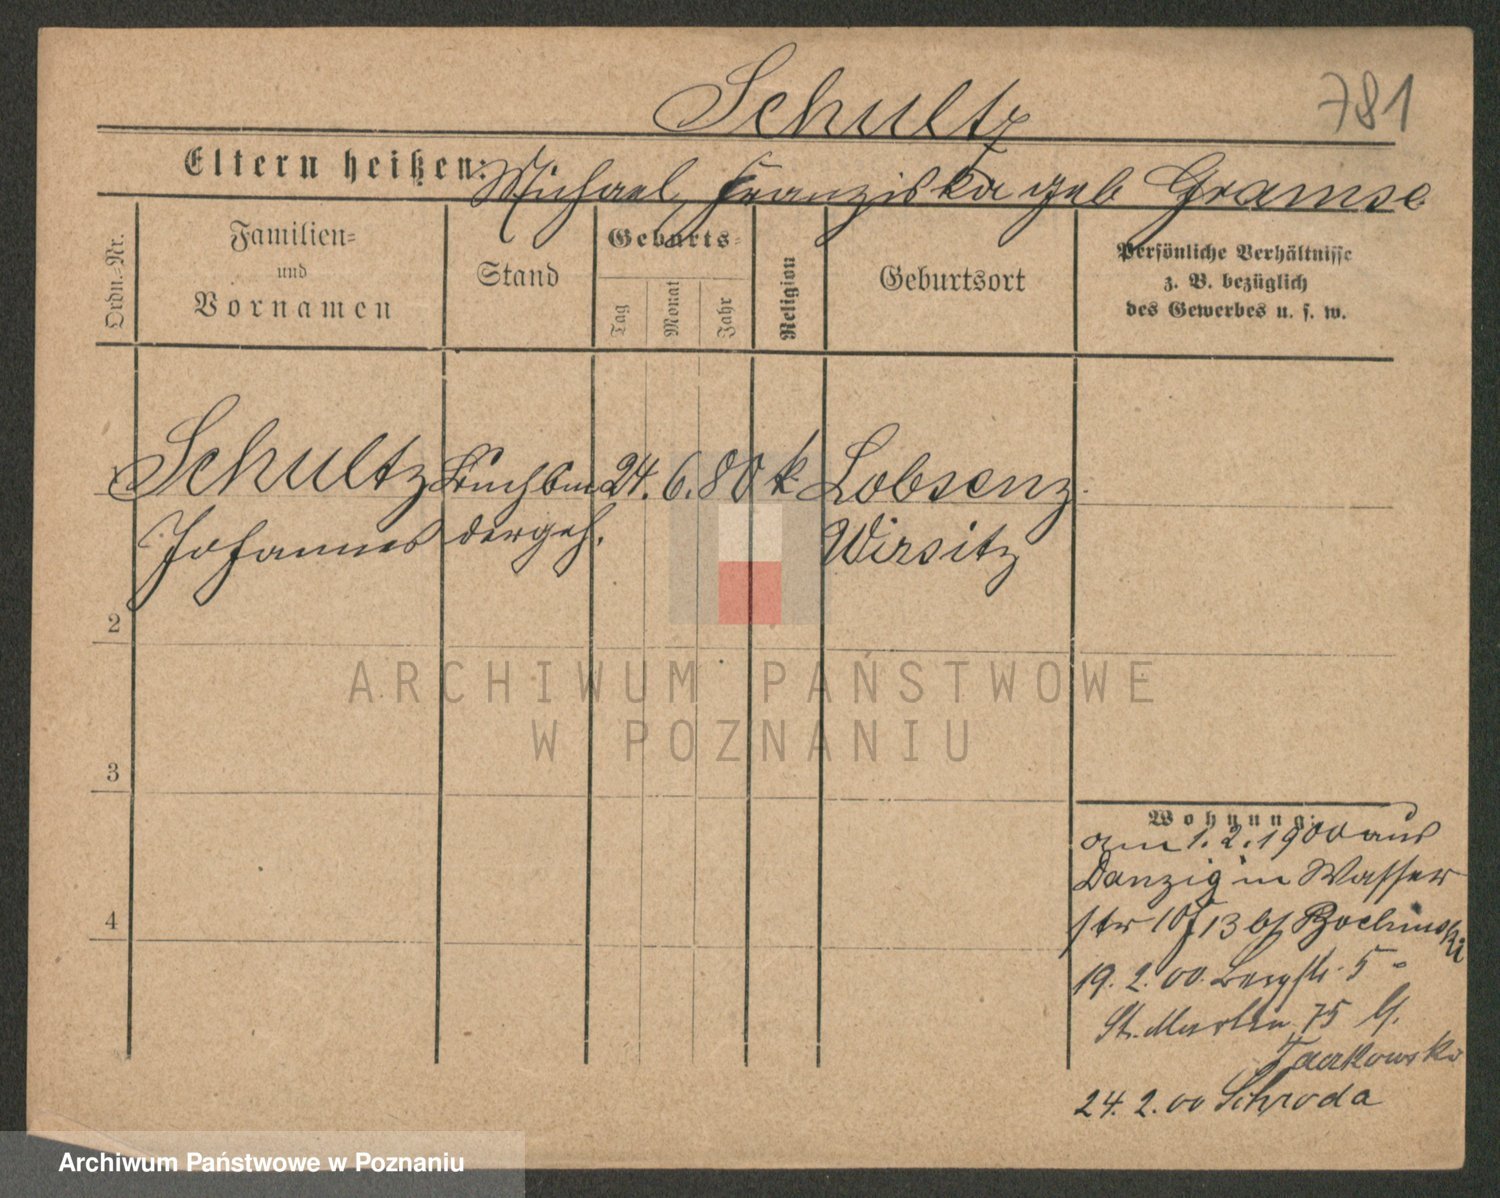 Schultz
781
Eltern heißen: Michael, Franziska geb Gramse
Ordn.-Nr.
Familien-
und
Vornamen
Stand
Geburts-
Tag
Monat
Jahr
Religion
Geburtsort
Persönliche Verhältnisse
z. B. bezüglich
des Gewerbes u. s. w.
1 Schultz Buchbin 24. 6. 80 k. Lobsenz
Johannes dergeh. Wirsitz
2
3
4
Wohnung:
am 1. 2. 1900 aus
Danzig in Wasser
str 10/13 bei
19. 2. 00 Bergstr. 5
St. Martin 75
24. 2. 00 Schroda
ARCHIWUM PAŃSTWOWE
W POZNANIU
Archiwum Państwowe w Poznaniu